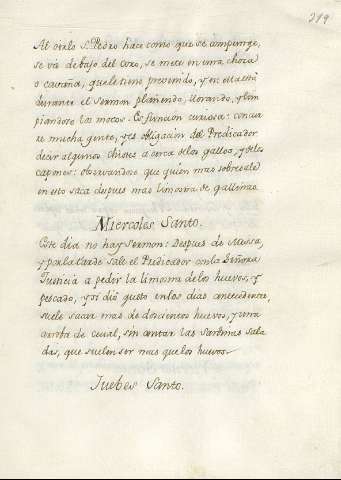 219
Al oirlo S. Pedro hace como que se compunge,
se vá debajo del Coro, se mete en una choza
o cabaña, que le tiene prevenido, y en ella está
durante el Sermon plañendo, llorando, y lim
piandose los mocos. Es funcion curiosa: concur
re mucha gente, y es obligacion del Predicador
decir algunos chistes a cerca de los gallos, y de los
capones: observandose que quien mas sobresale
en esto saca despues mas limosna de gallinas.
Miercoles Santo.
Este dia no hay sermon: Despues de Missa,
y por la tarde sale el Predicador con la Señora
Justicia a pedir la limosna de los huevos, y
pescado, y si dió gusto en los dias antecedentes,
suele sacar mas de doscientos huevos, y una
arroba de cecial, sin contar las sardinas sala
das, que suelen ser mas que los huevos.
Juebes Santo.